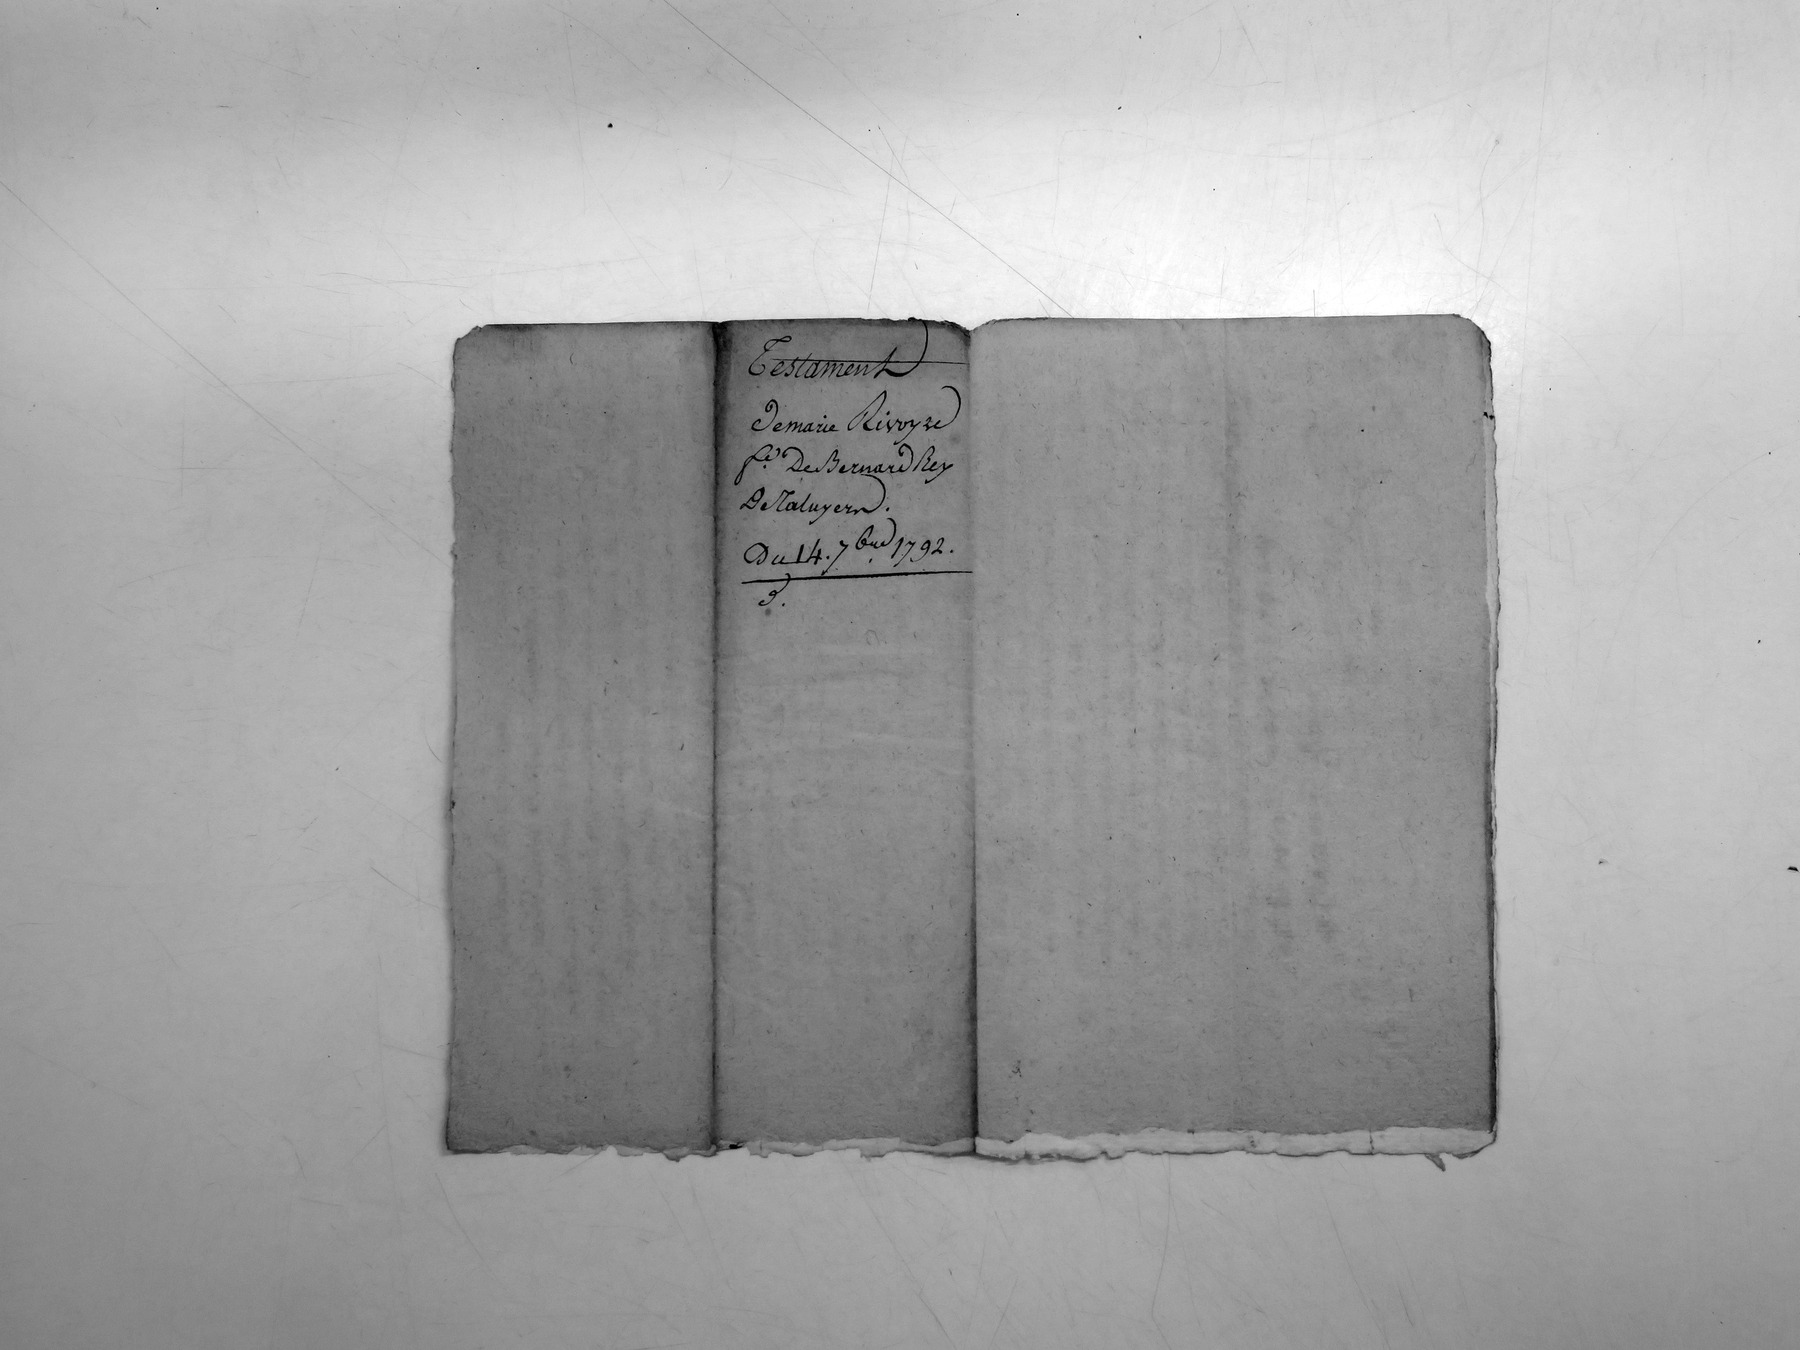 Testament
de marie Rivoyre
fe. De Bernard Rey
De Taluyers.
Du 14. 7bre 1792.
3.